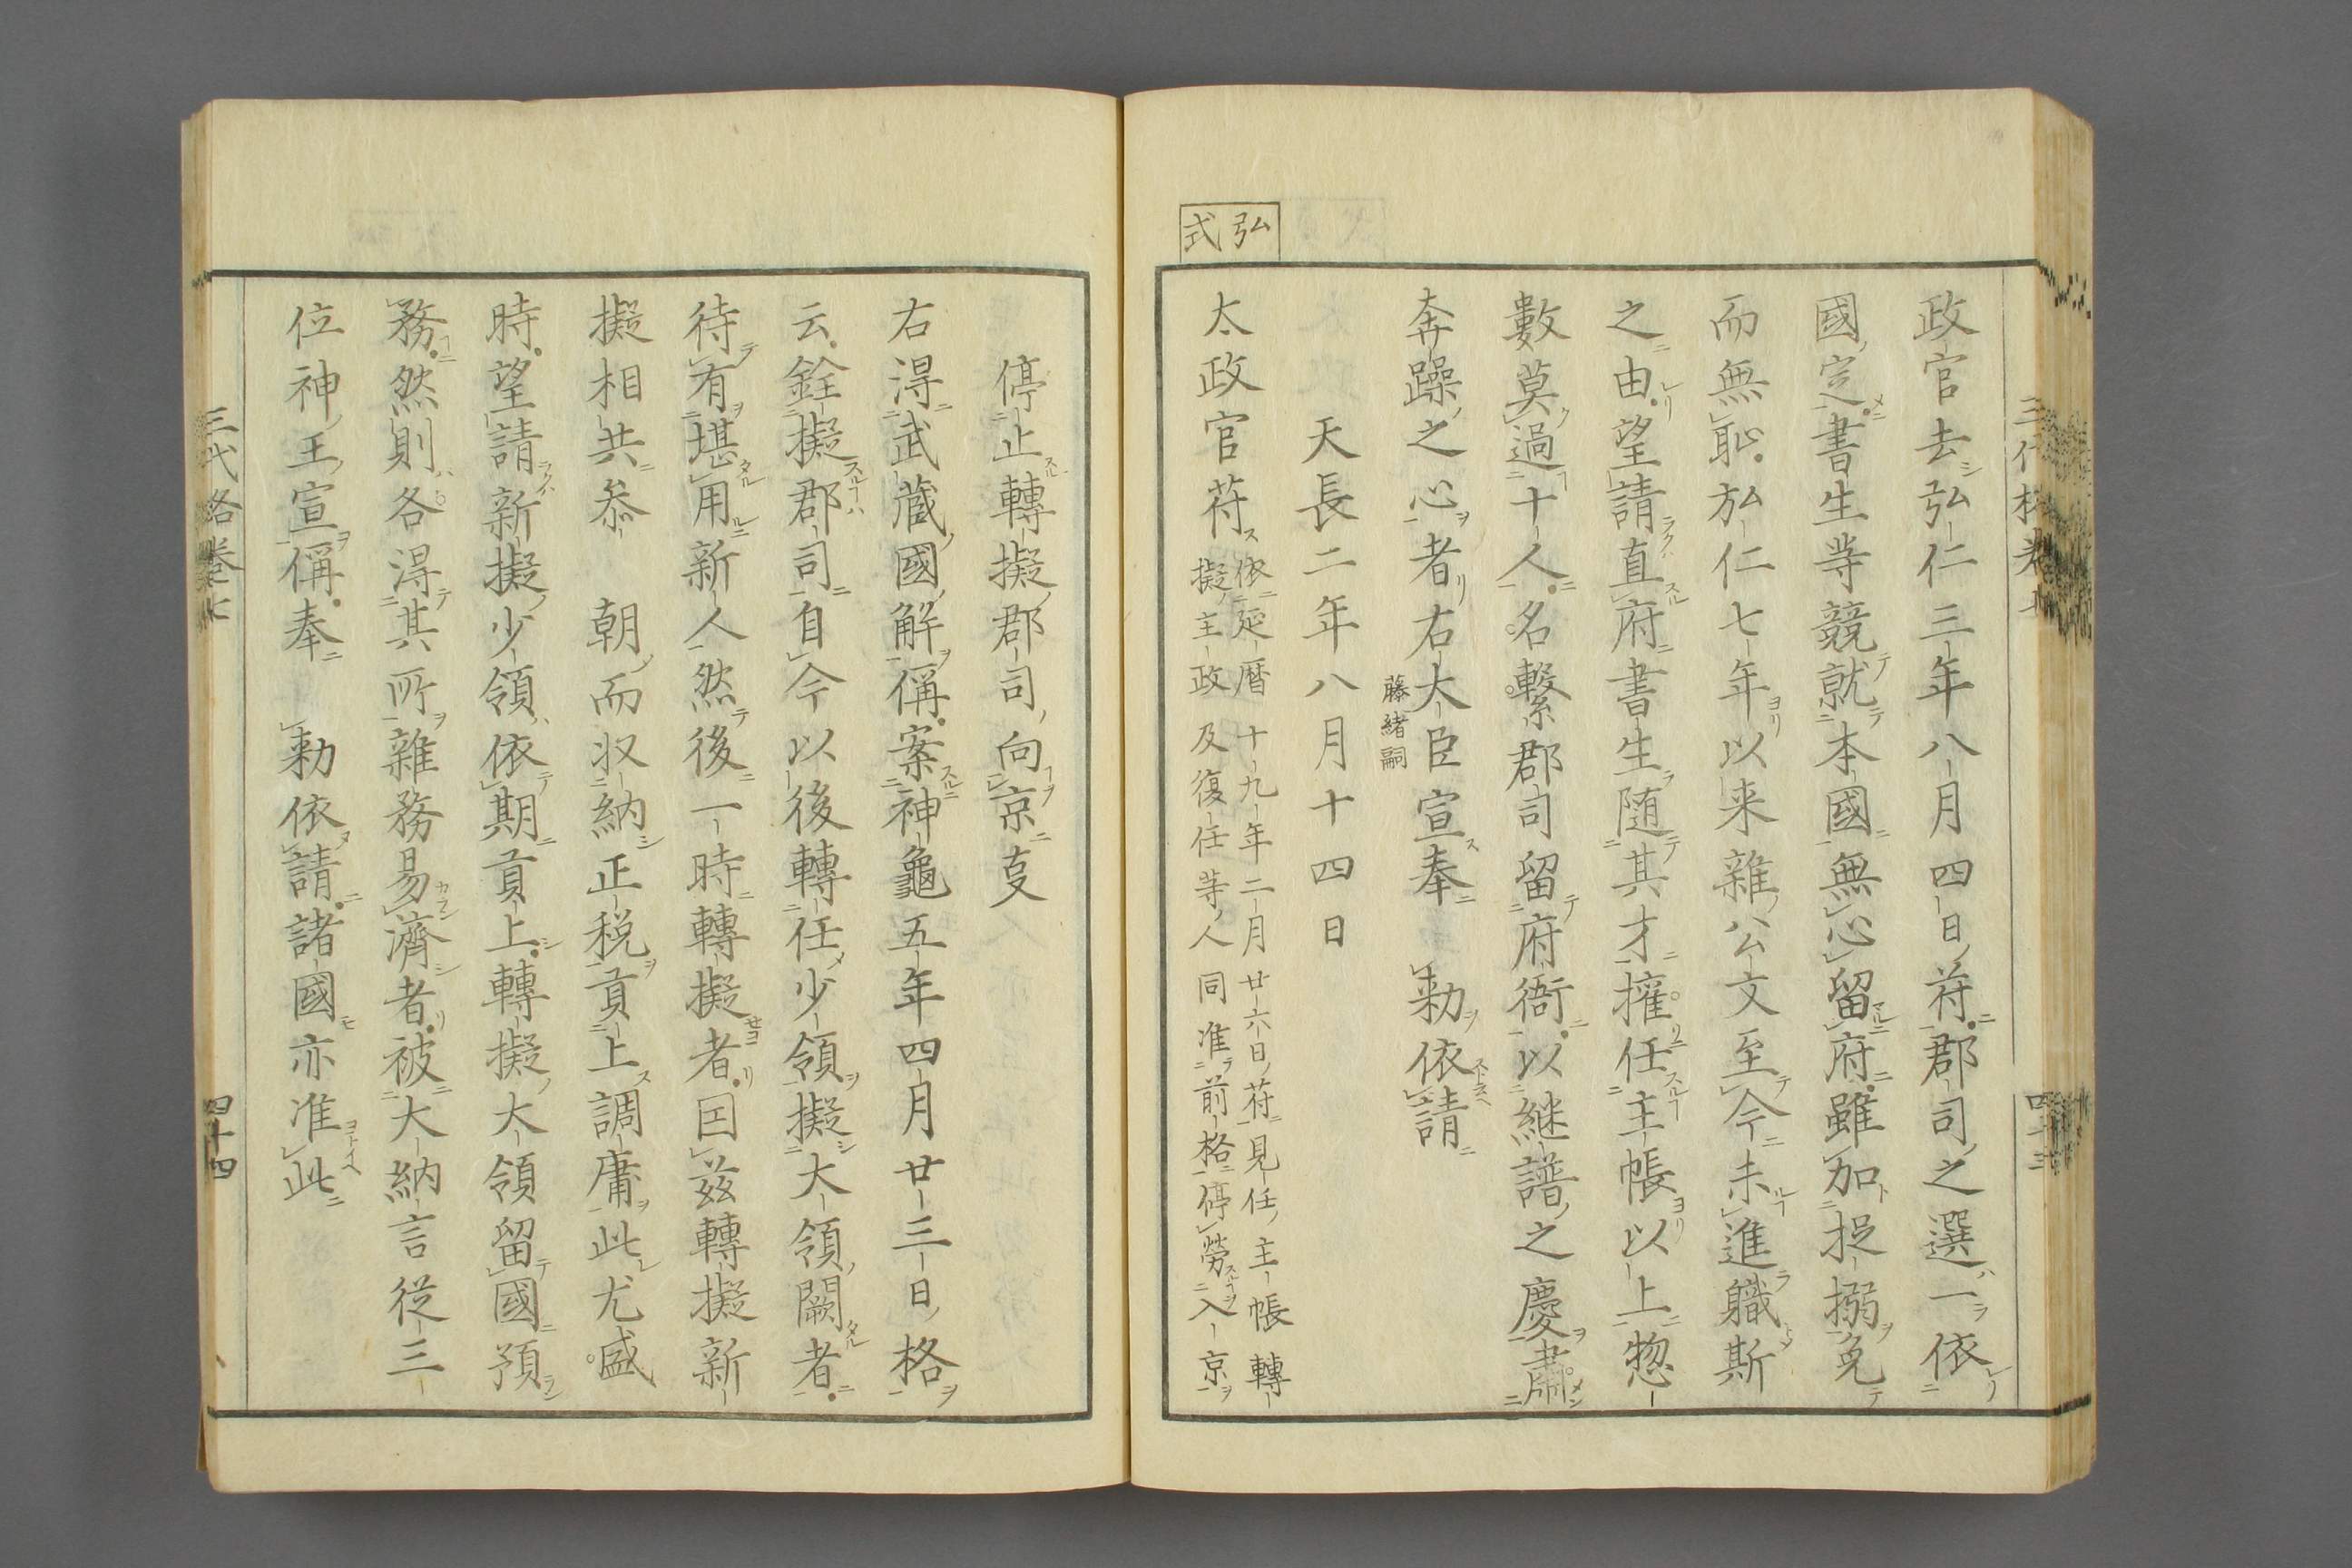 政官去弘仁三年八月四日符郡司之選一依
國定書生等競就本國無心留府雖加捉搦免
而無恥弘仁七年以来雜公文至今未進職斯
之由望請直府書生随其才擢任主帳以上惣
數莫過十人名繫郡司留府衙以継譜之慶肅
奔躁之心者右大臣宣奉　勅依請
藤緒嗣
天長二年八月十四日
弘式
太政官符
依延暦十九年二月廿六日符見任主帳轉
擬主政及復任等人同准前格停勞入京
停止轉擬郡司向京㕝
右得武蔵國解偁案神龜五年四月廿三日格
云銓擬郡司自今以後轉任少領擬大領闕者
待有堪用新人然後一時轉擬者因茲轉擬新
擬相共叅　朝而収納正税貢上調庸此尤盛
時望請新擬少領依期貢上轉擬大領留國預
務然則各得其所雜務易濟者被大納言従三
位神王宣偁奉　勅依請諸國亦准此
三代格巻七
四十四